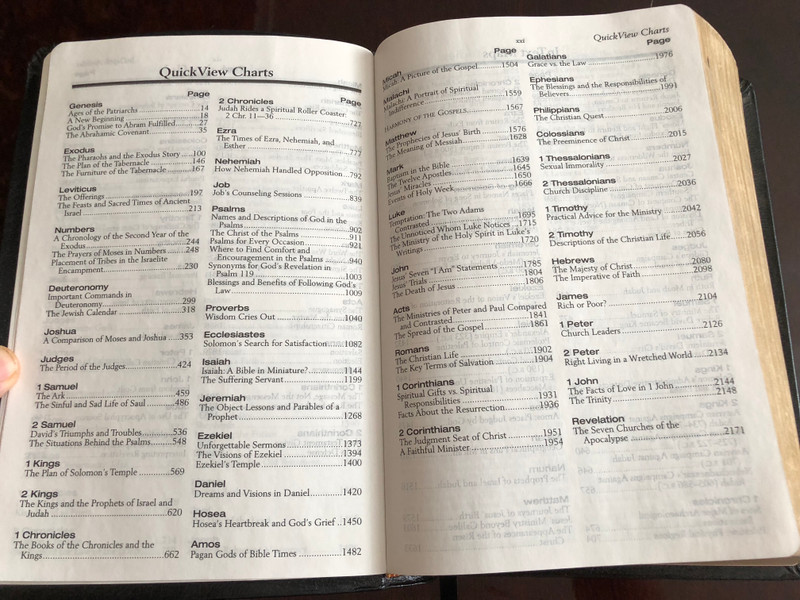 QuickView Charts
Page
Genesis
Ages of the Patriarchs 14
A New Beginning 18
God's Promise to Abram Fulfilled 27
The Abrahamic Covenant 35
Exodus
The Pharaohs and the Exodus Story 100
The Plan of the Tabernacle 146
The Furniture of the Tabernacle 167
Leviticus
The Offerings 197
The Feasts and Sacred Times of Ancient
Israel 213
Numbers
A Chronology of the Second Year of the
Exodus 244
The Prayers of Moses in Numbers 248
Placement of Tribes in the Israelite
Encampment 230
Deuteronomy
Important Commands in
Deuteronomy 299
The Jewish Calendar 318
Joshua
A Comparison of Moses and Joshua 353
Judges
The Period of the Judges 424
1 Samuel
The Ark 459
The Sinful and Sad Life of Saul 486
2 Samuel
David's Triumphs and Troubles 536
The Situations Behind the Psalms 548
1 Kings
The Plan of Solomon's Temple 569
2 Kings
The Kings and the Prophets of Israel and
Judah 620
1 Chronicles
The Books of the Chronicles and the
Kings 662
Page
2 Chronicles
Judah Rides a Spiritual Roller Coaster:
2 Chr. 11—36 727
Ezra
The Times of Ezra, Nehemiah, and
Esther 777
Nehemiah
How Nehemiah Handled Opposition 792
Job
Job's Counseling Sessions 839
Psalms
Names and Descriptions of God in the
Psalms 902
The Christ of the Psalms 911
Psalms for Every Occasion 921
Where to Find Comfort and
Encouragement in the Psalms 940
Synonyms for God's Revelation in
Psalm 119 1003
Blessings and Benefits of Following God's
Law 1009
Proverbs
Wisdom Cries Out 1040
Ecclesiastes
Solomon's Search for Satisfaction 1082
Isaiah
Isaiah: A Bible in Miniature? 1144
The Suffering Servant 1199
Jeremiah
The Object Lessons and Parables of a
Prophet 1268
Ezekiel
Unforgettable Sermons 1373
The Visions of Ezekiel 1394
Ezekiel's Temple 1400
Daniel
Dreams and Visions in Daniel 1420
Hosea
Hosea's Heartbreak and God's Grief 1450
Amos
Pagan Gods of Bible Times 1482
xxi
QuickView Charts
Page
Micah
Micah: A Picture of the Gospel 1504
Malachi
Malachi: A Portrait of Spiritual
Indifference 1559
HARMONY OF THE GOSPELS 1567
Matthew
The Prophecies of Jesus' Birth 1576
The Meaning of Messiah 1628
Mark
Baptism in the Bible 1639
The Twelve Apostles 1645
Jesus' Miracles 1650
Events of Holy Week 1666
Luke
Temptation: The Two Adams
Contrasted 1695
The Unnoticed Whom Luke Notices 1715
The Ministry of the Holy Spirit in Luke's
Writings 1720
John
Jesus' Seven "I Am" Statements 1785
Jesus' Trials 1804
The Death of Jesus 1806
Acts
The Ministries of Peter and Paul Compared
and Contrasted 1841
The Spread of the Gospel 1861
Romans
The Christian Life 1902
The Key Terms of Salvation 1904
1 Corinthians
Spiritual Gifts vs. Spiritual
Responsibilities 1931
Facts About the Resurrection 1936
2 Corinthians
The Judgment Seat of Christ 1951
A Faithful Minister 1954
Page
Galatians
Grace vs. the Law 1976
Ephesians
The Blessings and the Responsibilities of
Believers 1991
Philippians
The Christian Quest 2006
Colossians
The Preeminence of Christ 2015
1 Thessalonians
Sexual Immorality 2027
2 Thessalonians
Church Discipline 2036
1 Timothy
Practical Advice for the Ministry 2042
2 Timothy
Descriptions of the Christian Life 2056
Hebrews
The Majesty of Christ 2080
The Imperative of Faith 2098
James
Rich or Poor? 2104
1 Peter
Church Leaders 2126
2 Peter
Right Living in a Wretched World 2134
1 John
The Facts of Love in 1 John 2144
The Trinity 2148
Revelation
The Seven Churches of the
Apocalypse 2171